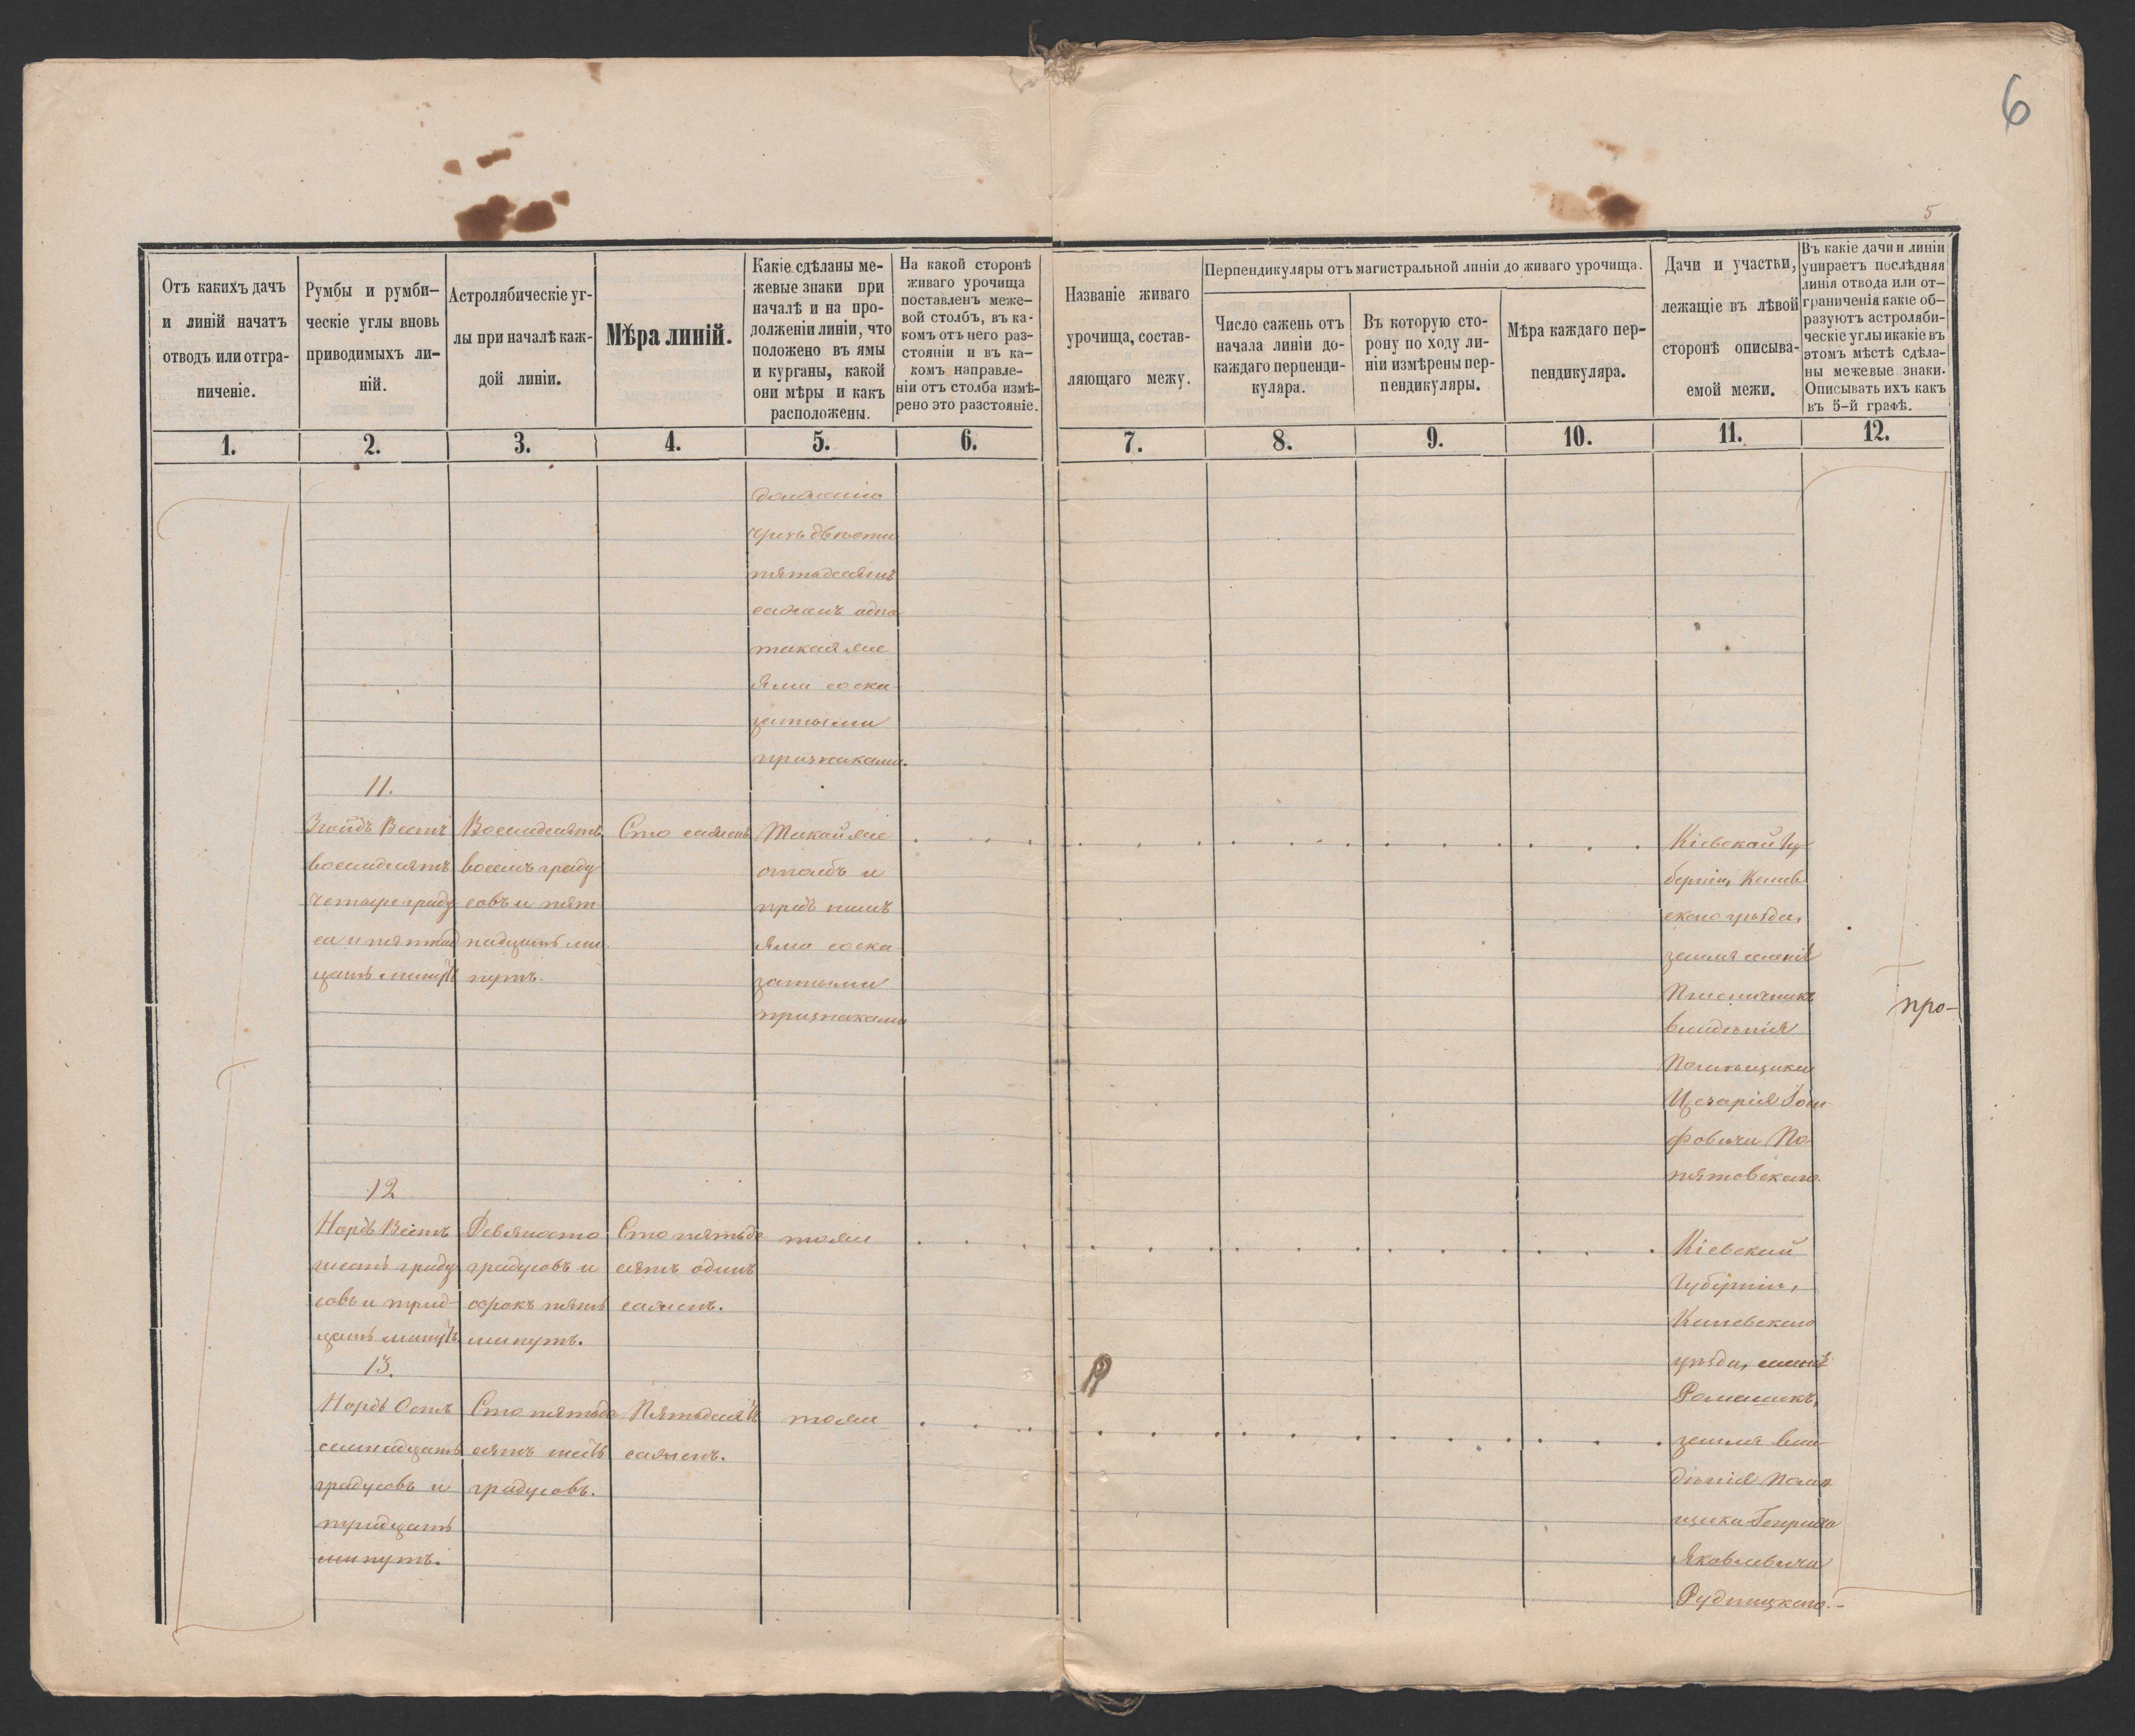 6
5
Отъ какихъ дачъ
и линій начатъ
отводъ или отгра-
ниченіе.
Румбы и румби-
ческіе углы вновь
приводимыхъ ли-
ній.
Астролябическіе уг-
лы при началѣ каж-
дой линіи.
Мѣра линій.
Какіе сдѣланы ме-
жевые знаки при
началѣ и на про-
долженіи линіи, что
положено въ ямы
и курганы, какой
они мѣры и какъ
расположены.
На какой сторонѣ
живаго урочища
поставленъ меже-
вой столбъ, въ ка-
комъ отъ него раз-
стояніи и въ ка-
комъ направле-
ніи отъ столба измѣ-
рено это разстояніе.
Названіе живаго
урочища, состав-
ляющаго межу.
Перпендикуляры отъ магистральной линіи до живаго урочища.
Число сажень отъ
начала линіи до-
каждаго перпенди-
куляра.
Въ которую сто-
рону по ходу ли-
ніи измѣрены пер-
пендикуляры.
Мѣра каждаго пер-
пендикуляра.
Дачи и участки,
лежащіе въ лѣвой
сторонѣ описыва-
емой межи.
Въ какіе дачи и линіи
упираетъ послѣдняя
линія отвода или от-
граниченія какіе об-
разуютъ астроляби-
ческіе углы и какіе въ
этомъ мѣстѣ сдѣла-
ны межевые знаки.
Описывать ихъ какъ
въ 5-й графѣ.
1. 2. 3. 4. 5. 6. 7. 8. 9. 10. 11. 12.
чрезъ двѣсти
пятьдесятъ
саженъ одна
такая же
яма со ска
занными
признаками.
11.
Зюйдъ Вестъ
восемдесятъ
четыре граду
са и пятнад
цать минутъ
Восемдесятъ
восемь граду
совъ и пят
надцать ми
нутъ.
Сто сажень
Такой же
столбъ и
предъ нимъ
яма со ска
занными
признаками
Кіевской Гу
берніи, Канев
скаго уѣзда,
земля селенія
владѣнія
Помѣщика
Цезарія Іози
фовича По-
нятовскаго.
про-
12
Нордъ Вестъ
шесть граду
совъ и трид-
цать минутъ.
Девяносто
градусовъ и
сорокъ пять
минутъ.
Сто пятьде
сятъ одинъ
сажень.
тоже
Кіевской
Губерніи,
Каневскаго
уѣзда, селенія
Ромашокъ,
земля вла-
дѣнія Помѣ
щика Генриха
Яковлевича
Рудницкаго.-
13.
Нордъ Остъ
семнадцать
градусовъ и
тридцать
минутъ.
Сто пятьде
сятъ шесть
градусовъ.
Пятьдесятъ
сажень.
тоже